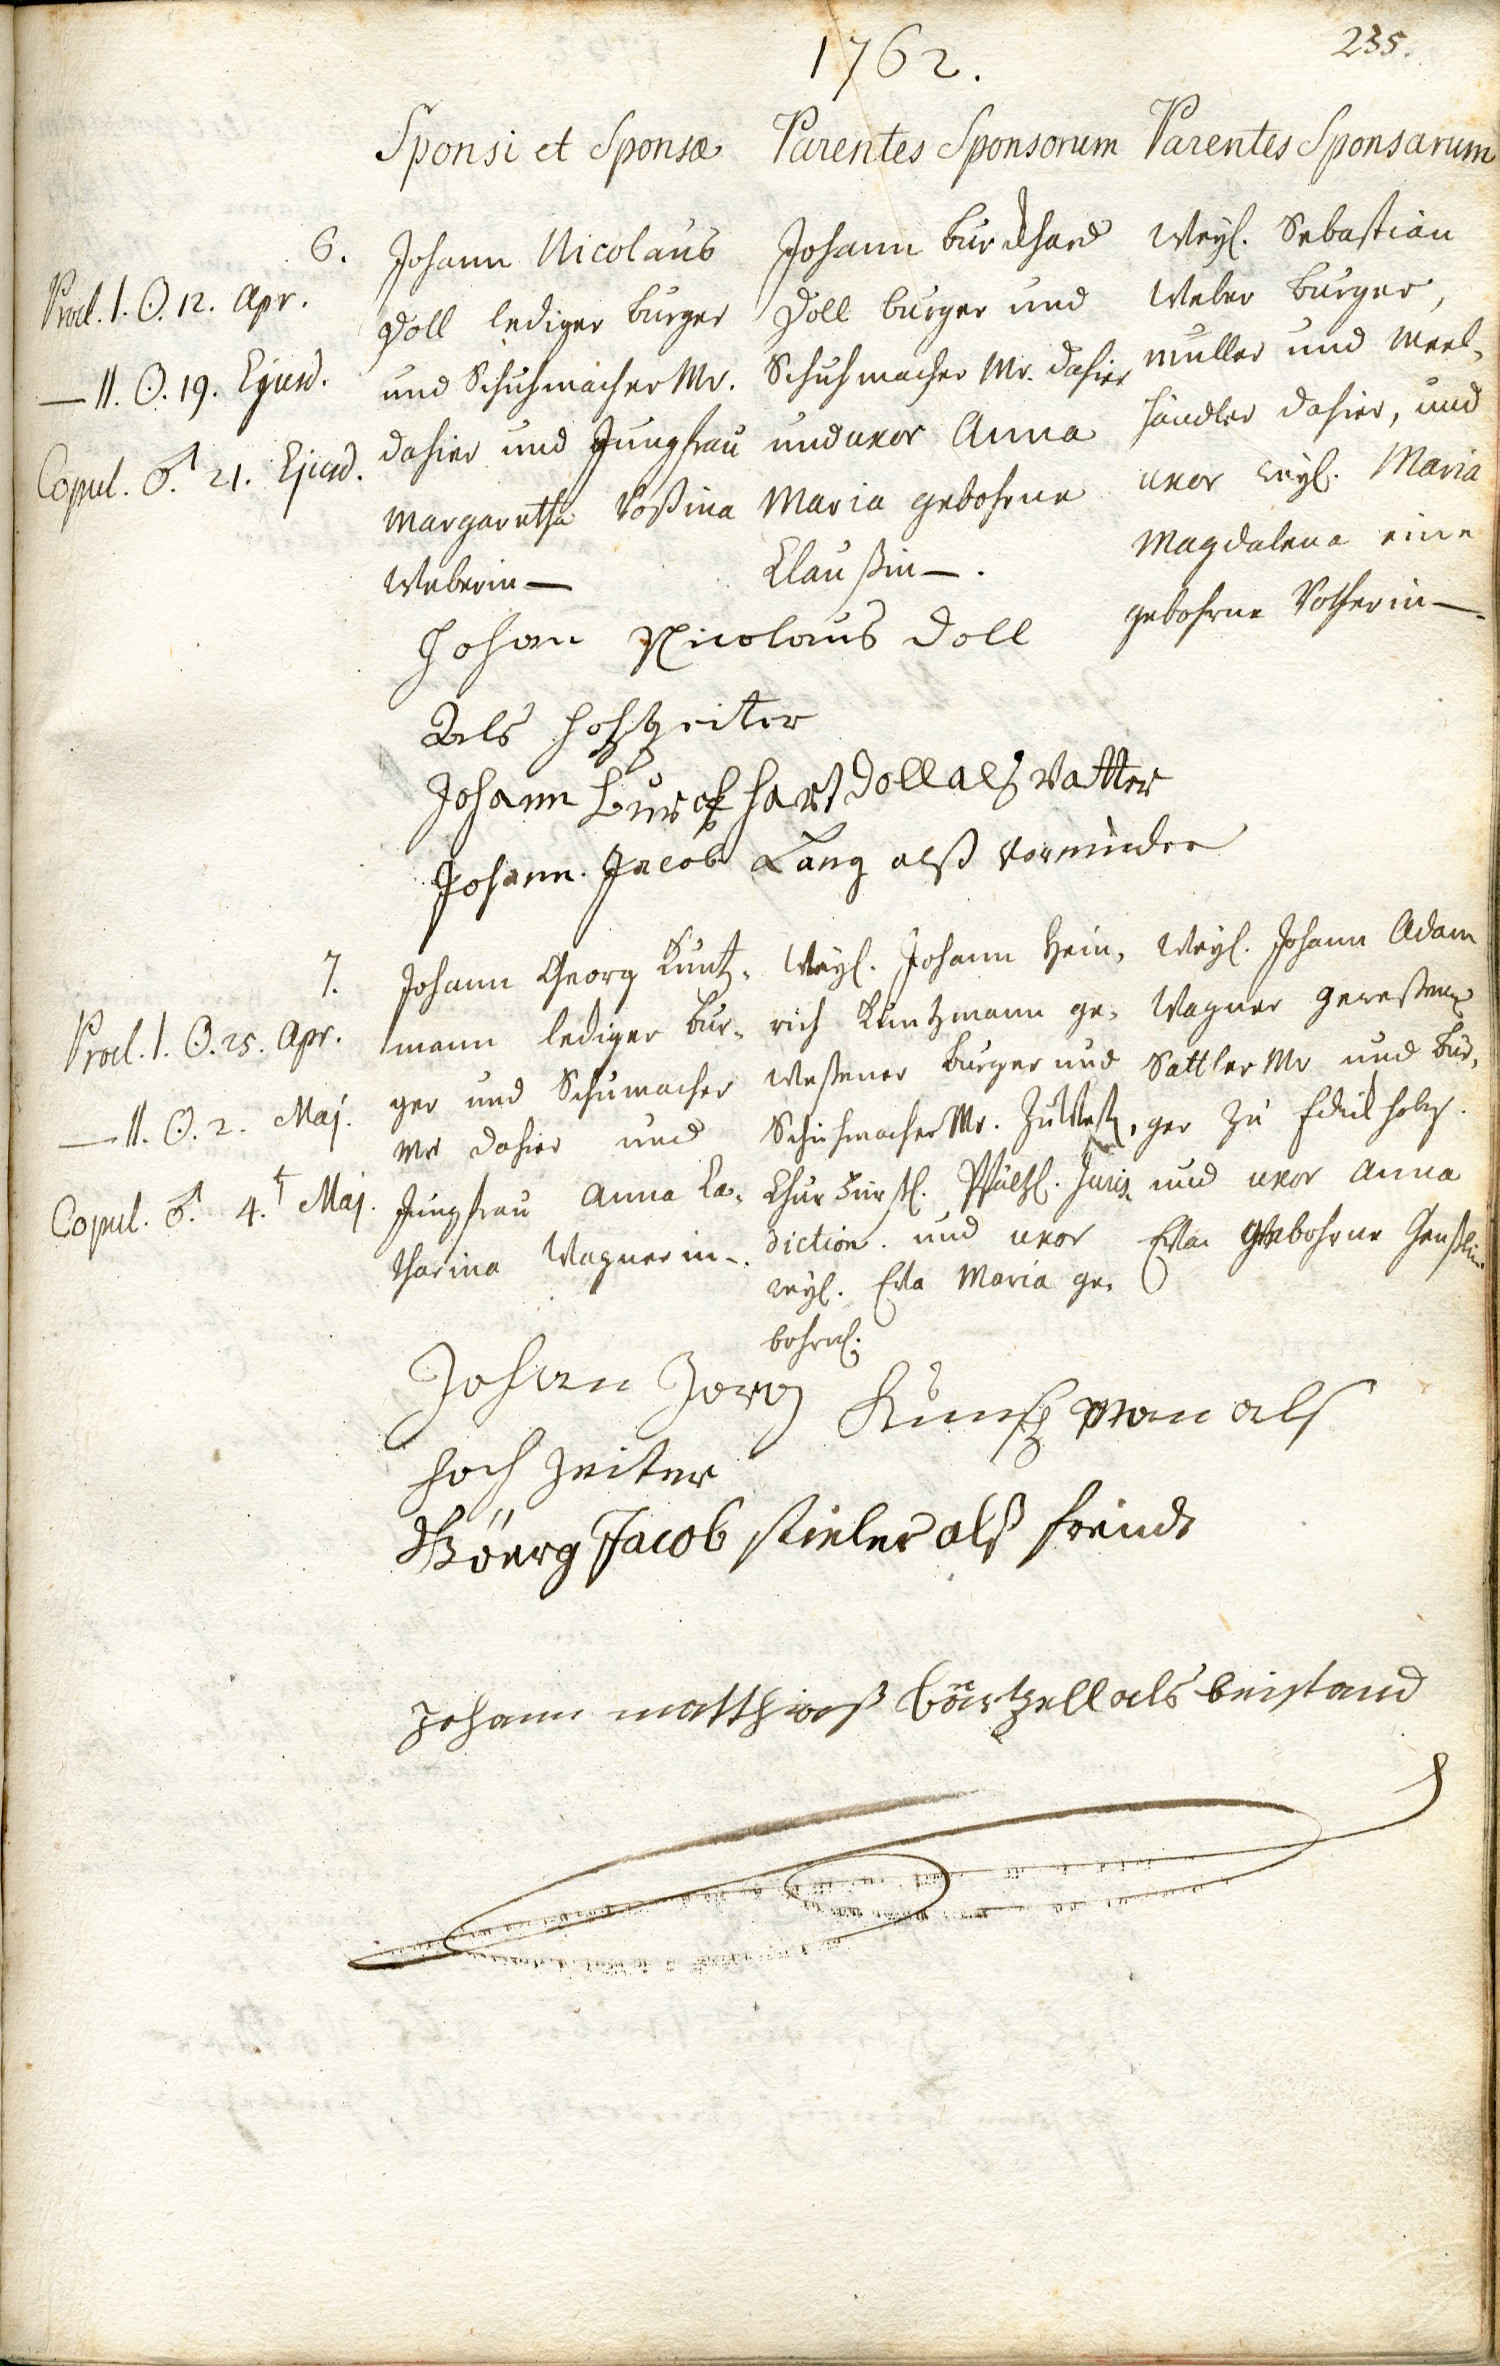 1762.
235.
Sponsi et Sponsæ
Parentes Sponsorum
Parentes Sponsarum
6.
Procl. I. ☉. 12. Apr.
— II. ☉. 19. Ejusd.
Copul. ♂. 21. Ejusd.
Johann Nicolaus
Doll lediger burger
und Schuhmacher Mr.
dahier und Jungfrau
Margaretha Rosina
Weberin —
Johann burckhard
Doll burger und
Schuhmacher Mr. dahier
und uxor Anna
Maria gebohrne
Claußin — .
Weyl. Sebastian
Weber burger,
müller und Meel-
händler dahier, und
uxor weyl. Maria
Magdalena eine
gebohrne Rotherin —
Johan Nicolaus Doll
Als hochzeiter
Johann Burckhart Doll als Vatter
Johann Jacob Lang alß Vormünder
7.
Procl. I. ☉. 25. Apr.
— II. ☉. 2. Maj.
Copul. ♂. 4.t Maj.
Johann Georg Kuntz-
mann lediger bur-
ger und Schumacher
Mr dahier und
Jungfrau Anna Ca-
tharina Wagnerin —.
Weyl. Johann Hein-
rich Kuntzmann ge-
wesener burger und
Schuhmacher Mr.
Churfürstl. Pfältz. Juris-
diction. und uxor
weyl. Eva Maria ge-
bohrne.
Weyl. Johann Adam
Wagner gewesener
Sattler Mr und bur-
ger zu
und uxor Anna
Eva gebohrne
Johan Jorg Kuntzman als
hoch zeiter
Göerg Jacob stieler alß freind
Johann matthias als beistand